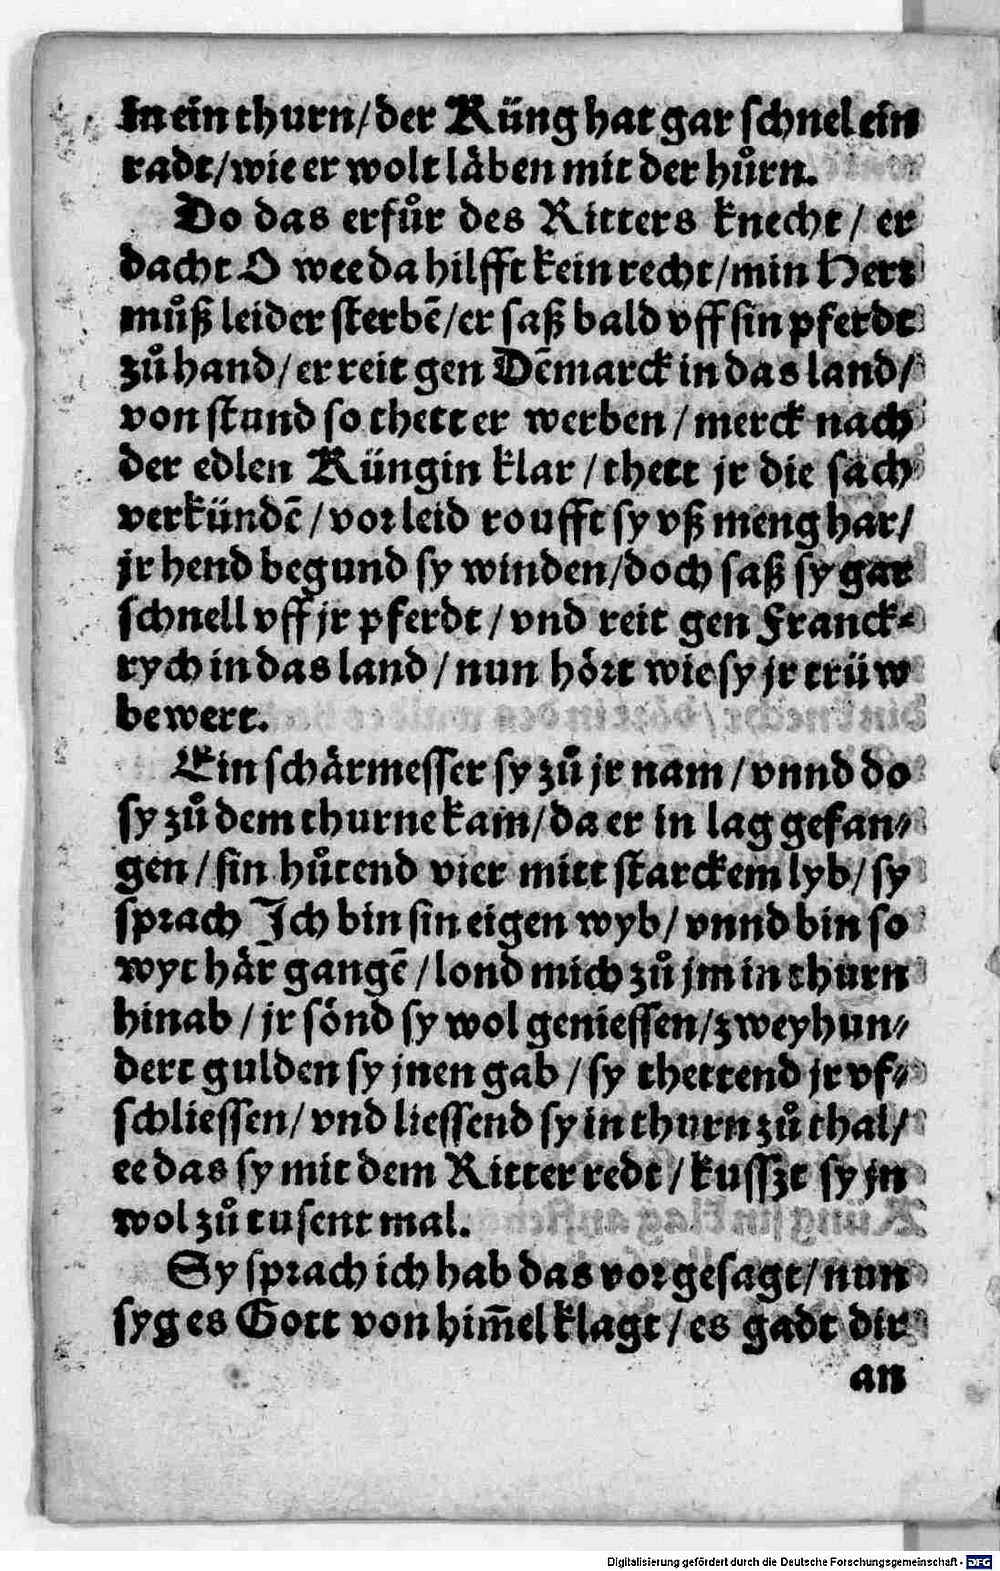 In ein thurn/der Küng hat gar schnel ein
radt/wie er wolt läben mit der hůrn.
Do das erfůr des Ritters knecht/ er
dacht O wee da hilfft kein recht/min Herr
můß leider sterbē/er saß bald vff sin pferdt
zů hand/er reit gen Dēmarck in das land/
von stund so thett er werben/merck nach
der edlen Küngin klar/thett jr die sach
verkündē/vor leid roufft sy vß meng har/
jr hend begund sy winden/doch saß sy gar
schnell vff jr pferdt/vnd reit gen Franck⸗
rych in das land/nun hört wie sy jr trüw
bewert.
Ein schärmesser sy zů jr nam/vnnd do
sy zů dem thurne kam/da er in lag gefan⸗
gen/sin hůtend vier mitt starckem lyb/sy
sprach Ich bin sin eigen wyb/vnnd bin so
wyt här gangē/lond mich zů jm in thurn
hinab/jr sönd sy wol geniessen/zweyhun⸗
dert gulden sy jnen gab/sy thettend jr vf⸗
schliessen/vnd liessend sy in thurn zů thal/
ee das sy mit dem Ritter redt/kusszt sy jn
wol zů tusent mal.
Sy sprach ich hab das vor gesagt/nun
syg es Gott von him̄el klagt/es gadt dir
an
Digitalisierung gefördert durch die Deutsche Forschungsgemeinschaft - DFG